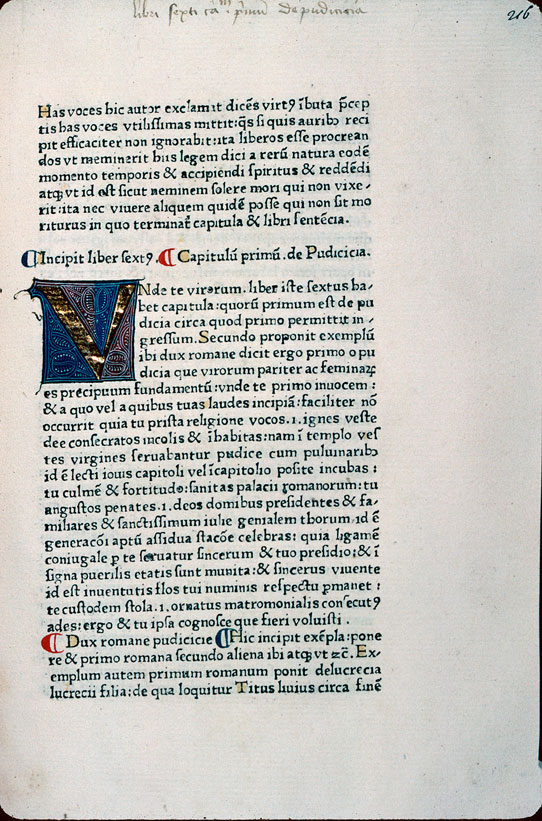 libri sexti cam. primu de pudicicia
216
Has voces hic autor exclamat dicēs virtꝰ ībuta p̄cep
tis has voces vtilissimas mittit: q̄s si quis auribꝫ reci
pit efficaciter non ignorabit: ita liberos esse procrean
dos vt meminerit hiis legem dici a rerū natura eodē
momento temporis & accipiendi spiritus & reddēdi
atqꝫ vt id est sicut neminem solere mori qui non vixe⸗
rit: ita nec viuere aliquem quidē posse qui non sit mo
riturus in quo terminat᷑ capitula & libri sentēcia.
¶ Incipit liber sextꝰ. ¶ Capitulū primū. de Pudicicia.
VNde te virorum. liber iste sextus ha⸗
bet capitula: quorū primum est de pu
dicia circa quod primo permittit in⸗
gressum. Secundo proponit exemplū
ibi dux romane dicit ergo primo o pu
dicia que virorum pariter ac feminaꝝ
es precipuum fundamentū: vnde te primo inuocem:
& a quo vel a quibus tuas laudes incipiā: faciliter nō
occurrit quia tu prista religione vocos .i. ignes veste
dee consecratos incolis & īhabitas: nam ī templo ves
tes virgines seruabantur pudice cum puluinaribꝫ
id ē lecti iouis capitoli vel īcapitolio posite incubas:
tu culmē & fortitudo: sanitas palacii romanorum: tu
angustos penates .i. deos domibus presidentes & fa⸗
miliares & sanctissimum iulie genialem thorum id ē
generacōi aptū assidua stacōe celebras: quia ligamē
coniugale ꝑ te seruatur sincerum & tuo presidio: & ī
signa puerilis etatis sunt munita: & sincerus viuente
id est inuentutis flos tui numinis respectu ꝑmanet:
te custodem stola .i. ornatus matromonialis consecutꝰ
ades: ergo & tu ipsa cognosce que fieri voluisti.
¶ Dux romane pudicicie ¶ Hic incipit exēpla: pone
re & primo romana secundo aliena ibi atqꝫ vt ⁊c̄. Ex⸗
emplum autem primum romanum ponit delucrecia
lucrecii filia: de qua loquitur Titus liuius circa finē